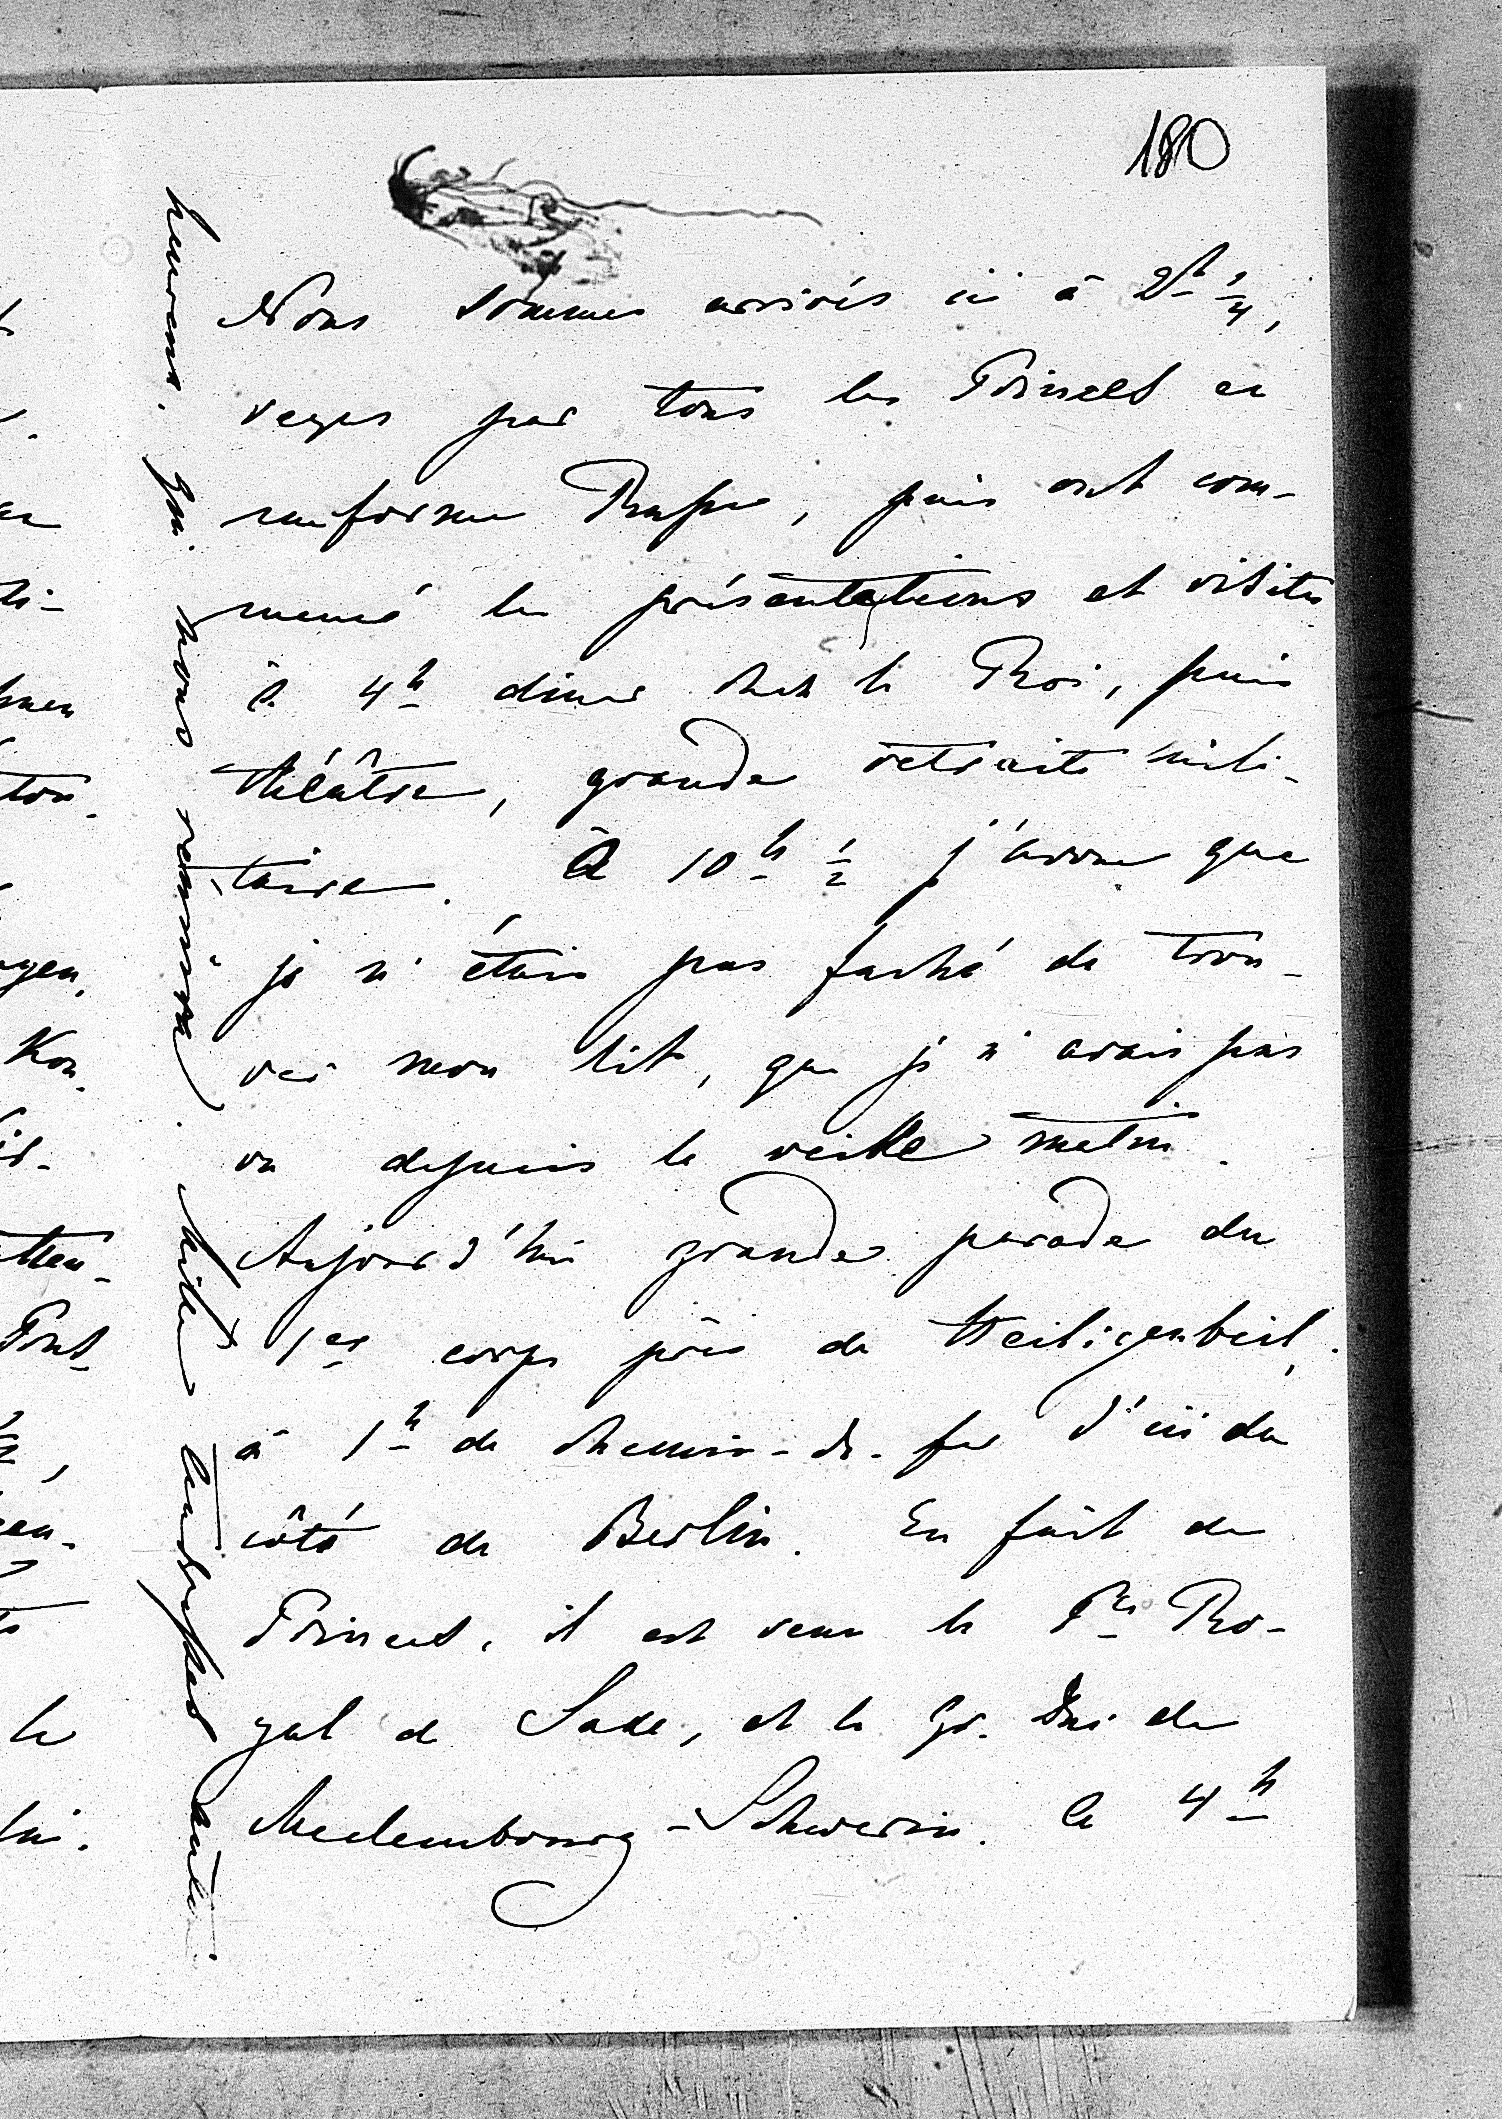 180
Nous sommes arrivés ici à 2h 1/4,
reçus par tous les Princes en
uniforme Russe, puis ont com-
mencé les présentations et visites
à 4h dîner chez le Roi, puis
théâtre, grande retraite mili-
taire. À 10h 1/2 j'avoue que
je n'étais pas faché de trou-
ver mon lit, que je n'avais pas
vu depuis la veille matin.
Aujourd'hui grande parade du
1er corps près de Heiligenbeil,
à 1h de chemin-de-fer d'ici du
côté de Berlin. En fait de
Princes, il est venu le Pce Ro-
yal de Saxe, et le Gr. Duc de
Meclembourg-Schwerin. à 4h
heureux. qui nous réunira. Mille tendresses